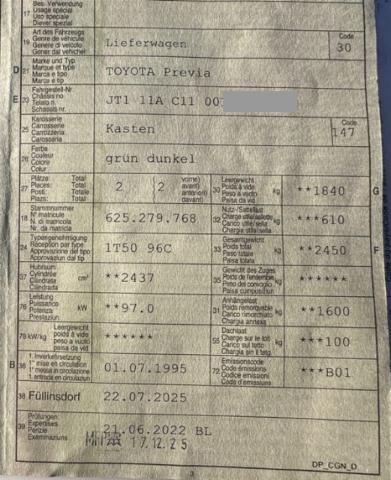 Bes. Verwendung
17 Usage spécial
Uso speciale
Diever spezial
Art des Fahrzeugs
19 Genre de véhicule
Genere di veicolo
Gener dal vehichel
Lieferwagen
Code
30
Marke und Typ
D 21 Marque et type
Marca e tipo
Marca e tip
TOYOTA Previa
Fahrgestell-Nr.
E 23 Châssis no
Telaio n.
Schassis nr.
JT1 11A C11 00
Karosserie
25 Carosserie
Carrozzeria
Carossaria
Kasten
Code
147
Farbe
26 Couleur
Colore
Colur
grün dunkel
Plätze: Total
27 Places: Total
Posti: Totale
Plazs: Total
2
2
vorne)
avant)
anteriori)
davant)
Leergewicht
30 Poids à vide kg
Peso a vuoto
Paisa da vid
**1840 G
Stammnummer
18 N° matricule
N. di matricola
Nr. da matricla
625.279.768
Nutz-/Sattellast
32 Charge utile/sellette kg
Carico utile/sella
Chargia útila/sella
***610
Typengenehmigung
24 Réception par type
Approvazione del tipo
Approvaziun dal tip
1T50 96C
Gesamtgewicht
33 Poids total kg
Peso totale
Paisa totala
**2450 F
Hubraum
37 Cylindrée cm³
Cilindrata
Cilindrada
**2437
Gewicht des Zuges
35 Poids de l'ensemble kg
Peso del convoglio
Paisa cumposiziun
******
Leistung
76 Puissance kW
Potenza
Prestaziun
**97.0
Anhängelast
31 Poids remorquable kg
Carico rimorchiato
Chargia annexa
**1600
Leergewicht
78 kW/kg poids à vide
peso a vuoto
paisa da vid
******
Dachlast
55 Charge sur le toit kg
Carico sul tetto
Chargia sin il tetg
***100
1. Inverkehrsetzung
B 36 1re mise en circulation
1a messa in circolazione
1. entrada en circulaziun
01.07.1995
Emissionscode
72 Code émissions
Codice emissioni
Code d'emissiuns
***B01
38 Füllinsdorf
22.07.2025
Prüfungen
39 Expertises
Perizie
Examinaziuns
21.06.2022 BL
17.12.25
3
DP_CGN_D